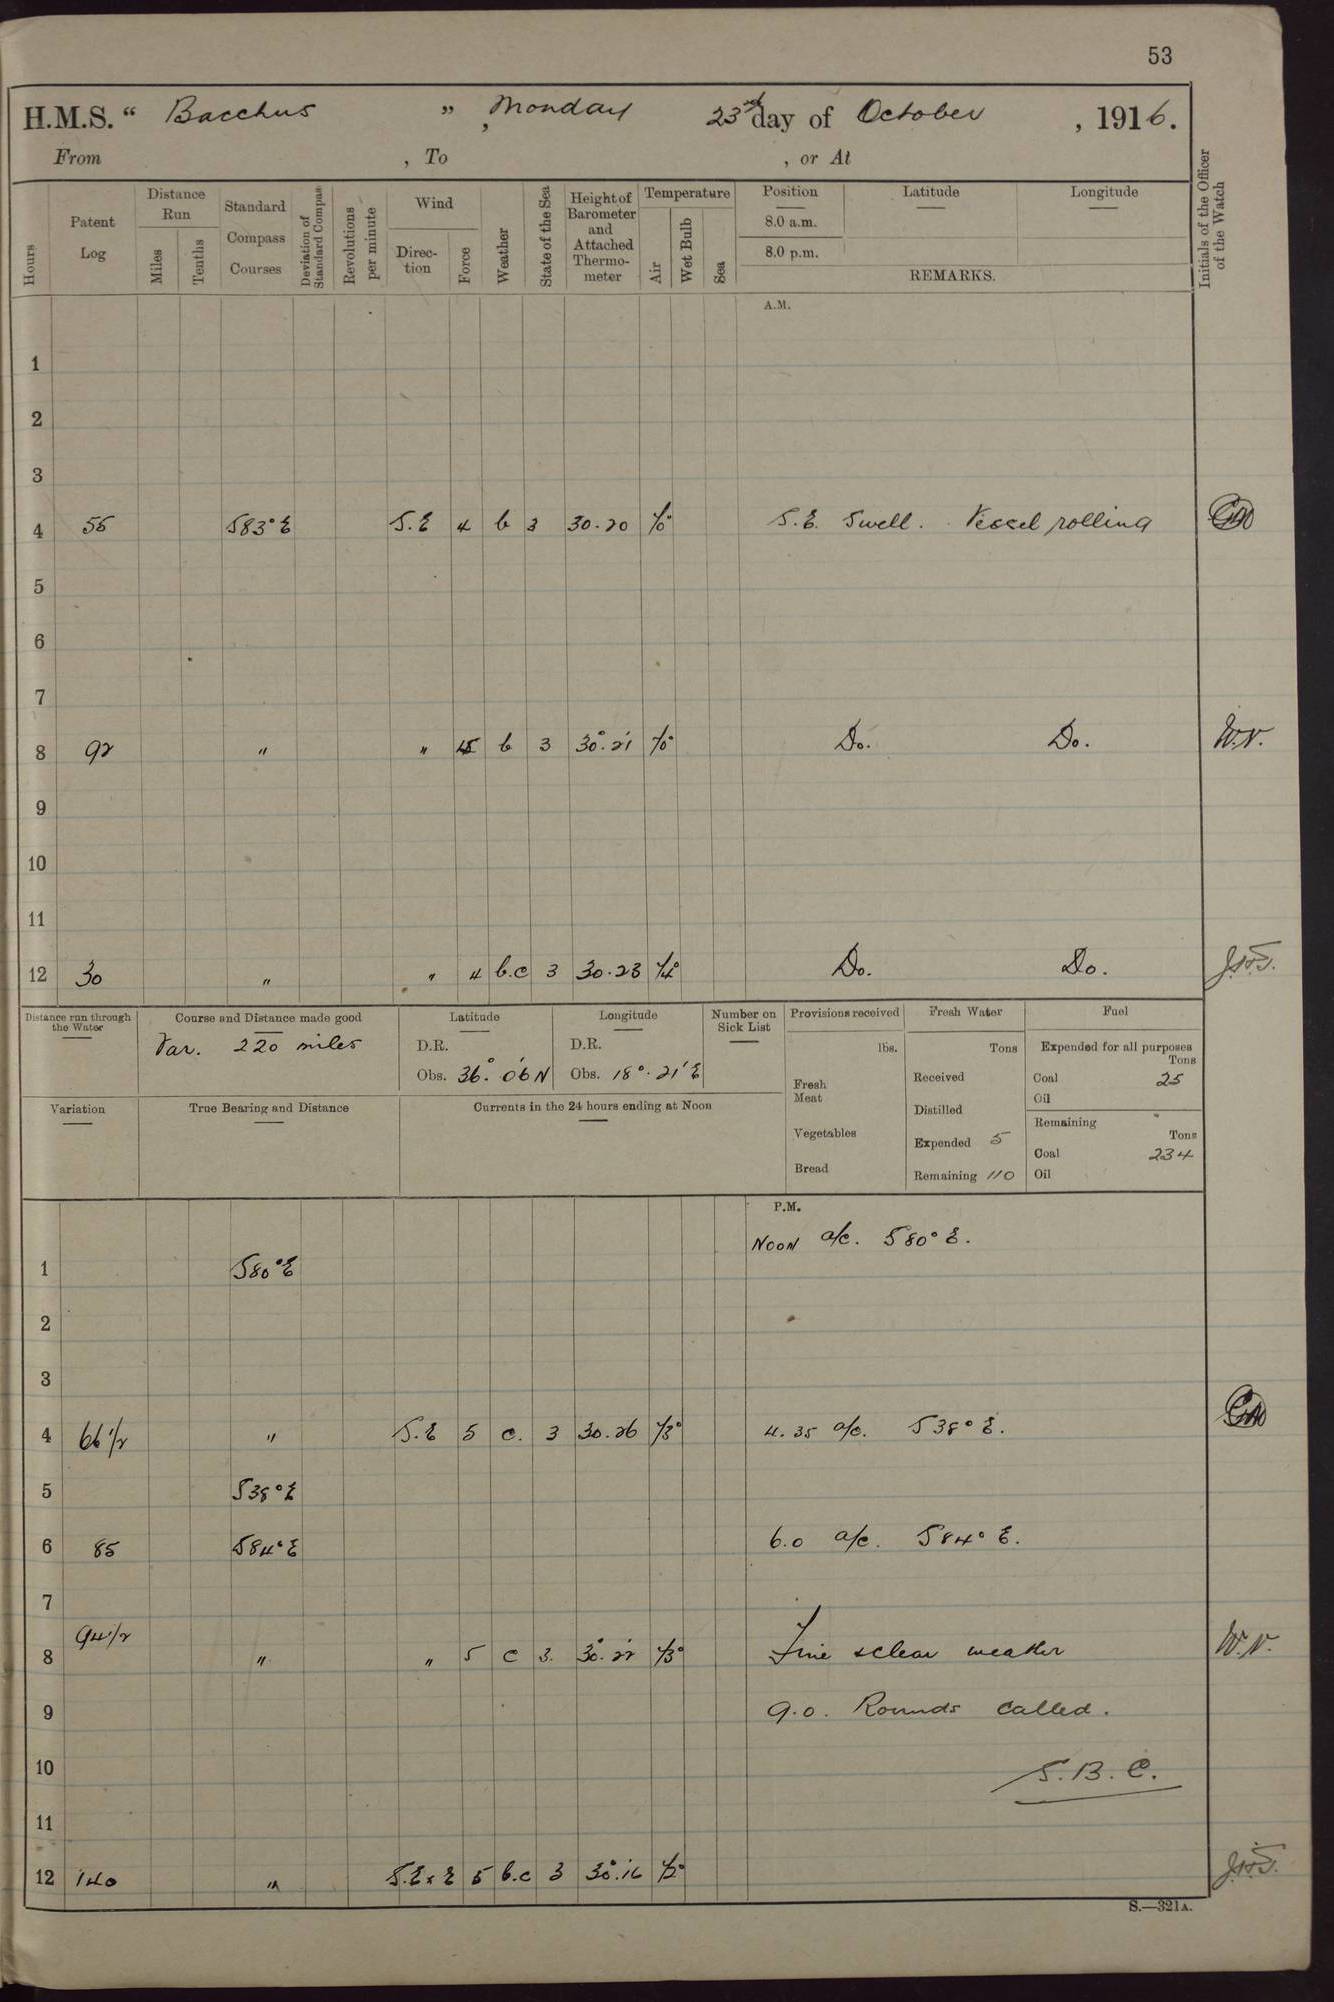 53
H.M.S. “ Bacchus ”, Monday 23rd day of October, 1916.
From , To , or At
Hours
Patent Log
Distance Run
Miles
Tenths
Standard Compass Courses
Deviation of Standard Compass
Revolutions per minute
Wind
Direction
Force
Weather
State of the Sea
Height of Barometer and Attached Thermometer
Temperature
Air
Wet Bulb
Sea
Position
8.0 a.m.
8.0 p.m.
Latitude
Longitude
REMARKS.
Initials of the Officer of the Watch
A.M.
1
2
3
4 55 S83°E S.E 4 b 3 30.20 70° S.E. Swell. Vessel rolling
5
6
7
8 92 " " 5 b 3 30.21 70° Do. Do. W.V.
9
10
11
12 30 " " 4 b.c 3 30.23 74° Do. Do.
Distance run through the Water
Course and Distance made good
Var. 220 miles
Latitude
D.R.
Obs. 36° 06' N
Longitude
D.R.
Obs. 18° 21' E
Number on Sick List
Provisions received
lbs.
Fresh Meat
Vegetables
Bread
Fresh Water
Tons
Received
Distilled
Expended 5
Remaining 110
Fuel
Expended for all purposes
Tons
Coal 25
Oil
Remaining
Tons
Coal 234
Oil
Variation
True Bearing and Distance
Currents in the 24 hours ending at Noon
P.M.
NOON a/c. S80°E.
1 S80°E
2
3
4 66 1/2 " S.E 5 c. 3 30.26 73° 4.35 a/c. S38°E.
5 S38°E
6 85 S84°E 6.0 a/c. S84°E.
7
8 94 1/2 " " 5 c 3. 30.22 73° Fine & clear weather W.V.
9 9.0. Rounds called.
10 S.B.C.
11
12 140 " S.E x E 5 b.c 3 30.16 72°
S.—321A.